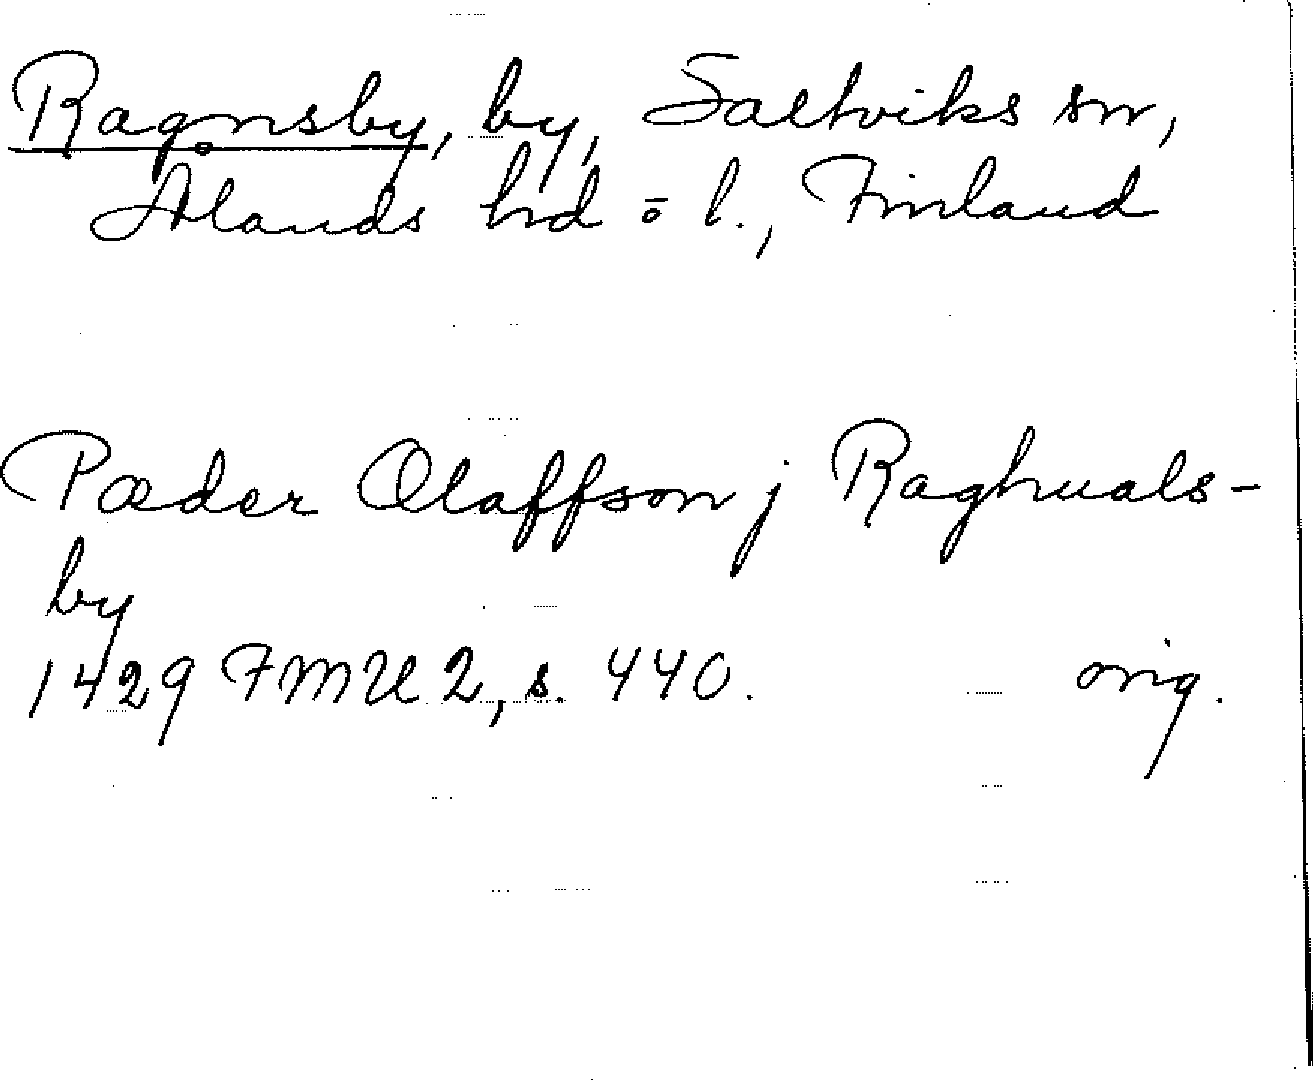 Ragnsby, by, Saltviks sn,
Ålands hd o l., Finland
Pæder Olaffson j Raghuals-
by
1429 FMU 2, s. 440. orig.